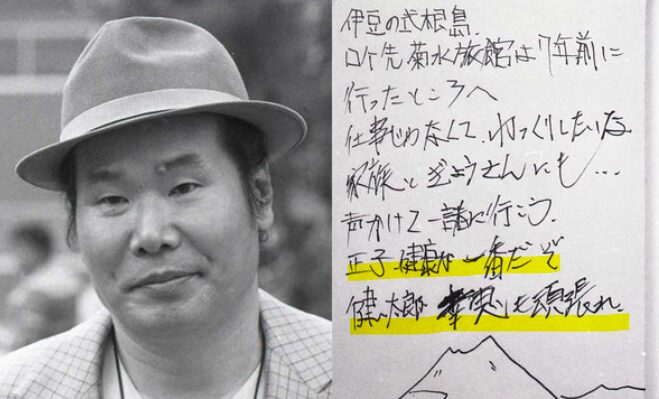 伊豆の式根島.
ロケ先 菊水旅館は7年前に
行ったところへ
仕事じゃなくて、ゆっくりしたいな
家族とぎょうさんにも…
声かけて一諸に行こう.
正子 健康が一番だぞ
健太郎 実も頑張れ.